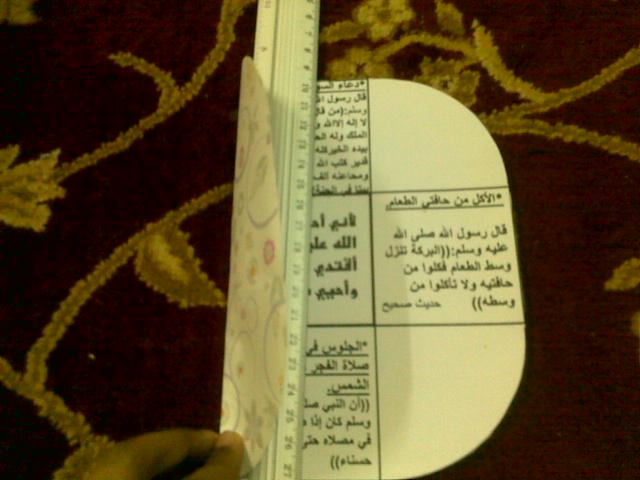 *دعاء
قال رسول
وسلم:((من
لا إله إلا الله
الملك وله
بيده الخير
قدير كتب الله
ومحا عنه ألف
بيتا في الجنة
*الأكل من حافتي الطعام.
قال رسول الله صلى الله
عليه وسلم:((البركة تنزل
وسط الطعام فكلوا من
حافتيه ولا تأكلوا من
وسطه)) حديث صحيح
لأني
الله
أقتدي
وأحيي
*الجلوس في
صلاة الفجر
الشمس.
((أن النبي
وسلم كان إذا
في مصلاه حتى
حسناء))
10
11
12
13
14
15
16
17
18
19
20
21
22
23
24
25
26
27